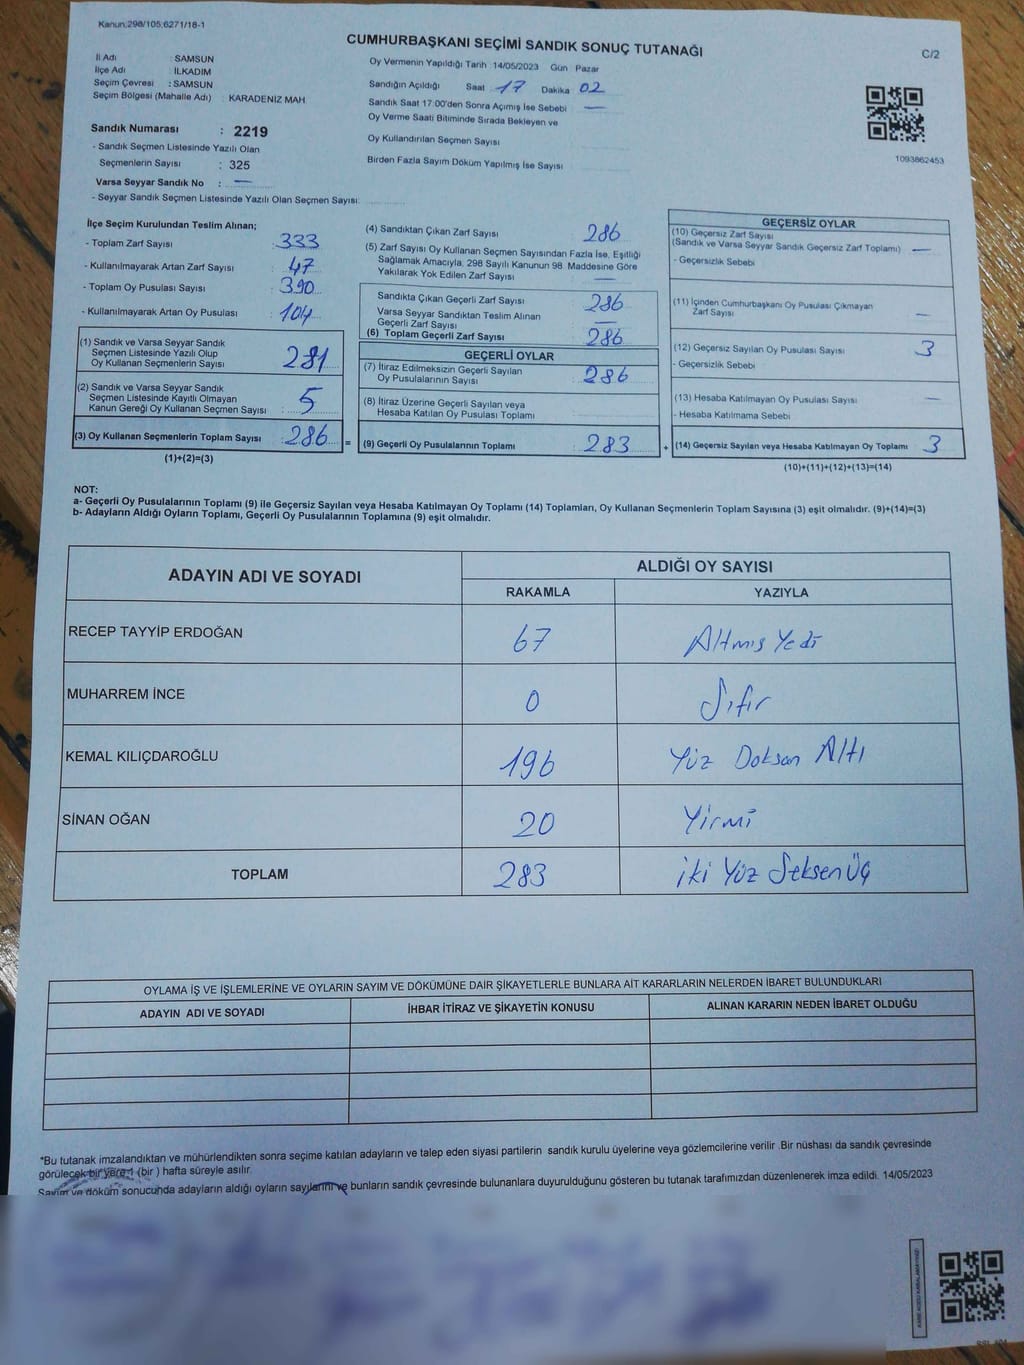 Kanun,298/105,6271/18-1
CUMHURBAŞKANI SEÇİMİ SANDIK SONUÇ TUTANAĞI
C/2
İl Adı : SAMSUN
İlçe Adı : İLKADIM
Seçim Çevresi : SAMSUN
Seçim Bölgesi (Mahalle Adı) : KARADENİZ MAH
Sandık Numarası : 2219
- Sandık Seçmen Listesinde Yazılı Olan
Seçmenlerin Sayısı : 325
Varsa Seyyar Sandık No : —
- Seyyar Sandık Seçmen Listesinde Yazılı Olan Seçmen Sayısı:
Oy Vermenin Yapıldığı Tarih 14/05/2023 Gün Pazar
Sandığın Açıldığı Saat 17 Dakika 02
Sandık Saat 17:00'den Sonra Açımış İse Sebebi —
Oy Verme Saati Bitiminde Sırada Bekleyen ve
Oy Kullandırılan Seçmen Sayısı
Birden Fazla Sayım Döküm Yapılmış İse Sayısı
1093862453
İlçe Seçim Kurulundan Teslim Alınan;
- Toplam Zarf Sayısı : 333
- Kullanılmayarak Artan Zarf Sayısı : 47
- Toplam Oy Pusulası Sayısı : 390
- Kullanılmayarak Artan Oy Pusulası : 104
(1) Sandık ve Varsa Seyyar Sandık
Seçmen Listesinde Yazılı Olup
Oy Kullanan Seçmenlerin Sayısı : 281
(2) Sandık ve Varsa Seyyar Sandık
Seçmen Listesinde Kayıtlı Olmayan
Kanun Gereği Oy Kullanan Seçmen Sayısı : 5
(3) Oy Kullanan Seçmenlerin Toplam Sayısı : 286 =
(1)+(2)=(3)
(4) Sandıktan Çıkan Zarf Sayısı : 286
(5) Zarf Sayısı Oy Kullanan Seçmen Sayısından Fazla İse, Eşitliği
Sağlamak Amacıyla, 298 Sayılı Kanunun 98 Maddesine Göre
Yakılarak Yok Edilen Zarf Sayısı : —
Sandıkta Çıkan Geçerli Zarf Sayısı : 286
Varsa Seyyar Sandıktan Teslim Alınan
Geçerli Zarf Sayısı : —
(6) Toplam Geçerli Zarf Sayısı : 286
GEÇERLİ OYLAR
(7) İtiraz Edilmeksizin Geçerli Sayılan
Oy Pusulalarının Sayısı : 286
(8) İtiraz Üzerine Geçerli Sayılan veya
Hesaba Katılan Oy Pusulası Toplamı :
(9) Geçerli Oy Pusulalarının Toplamı : 283 +
GEÇERSİZ OYLAR
(10) Geçersiz Zarf Sayısı
(Sandık ve Varsa Seyyar Sandık Geçersiz Zarf Toplamı) —
- Geçersizlik Sebebi
(11) İçinden Cumhurbaşkanı Oy Pusulası Çıkmayan
Zarf Sayısı —
(12) Geçersiz Sayılan Oy Pusulası Sayısı 3
- Geçersizlik Sebebi
(13) Hesaba Katılmayan Oy Pusulası Sayısı —
- Hesaba Katılmama Sebebi
(14) Geçersiz Sayılan veya Hesaba Katılmayan Oy Toplamı 3
(10)+(11)+(12)+(13)=(14)
NOT:
a- Geçerli Oy Pusulalarının Toplamı (9) ile Geçersiz Sayılan veya Hesaba Katılmayan Oy Toplamı (14) Toplamları, Oy Kullanan Seçmenlerin Toplam Sayısına (3) eşit olmalıdır. (9)+(14)=(3)
b- Adayların Aldığı Oyların Toplamı, Geçerli Oy Pusulalarının Toplamına (9) eşit olmalıdır.
ADAYIN ADI VE SOYADI ALDIĞI OY SAYISI
RAKAMLA YAZIYLA
RECEP TAYYİP ERDOĞAN 67 Altmış Yedi
MUHARREM İNCE 0 Sıfır
KEMAL KILIÇDAROĞLU 196 Yüz Doksan Altı
SİNAN OĞAN 20 Yirmi
TOPLAM 283 İki Yüz Seksen Üç
OYLAMA İŞ VE İŞLEMLERİNE VE OYLARIN SAYIM VE DÖKÜMÜNE DAİR ŞİKAYETLERLE BUNLARA AİT KARARLARIN NELERDEN İBARET BULUNDUKLARI
ADAYIN ADI VE SOYADI İHBAR İTİRAZ VE ŞİKAYETİN KONUSU ALINAN KARARIN NEDEN İBARET OLDUĞU
*Bu tutanak imzalandıktan ve mühürlendikten sonra seçime katılan adayların ve talep eden siyasi partilerin sandık kurulu üyelerine veya gözlemcilerine verilir .Bir nüshası da sandık çevresinde
görülecek bir yere 1 (bir ) hafta süreyle asılır.
Sayım ve döküm sonucunda adayların aldığı oyların sayılarını ve bunların sandık çevresinde bulunanlara duyurulduğunu gösteren bu tutanak tarafımızdan düzenlenerek imza edildi. 14/05/2023